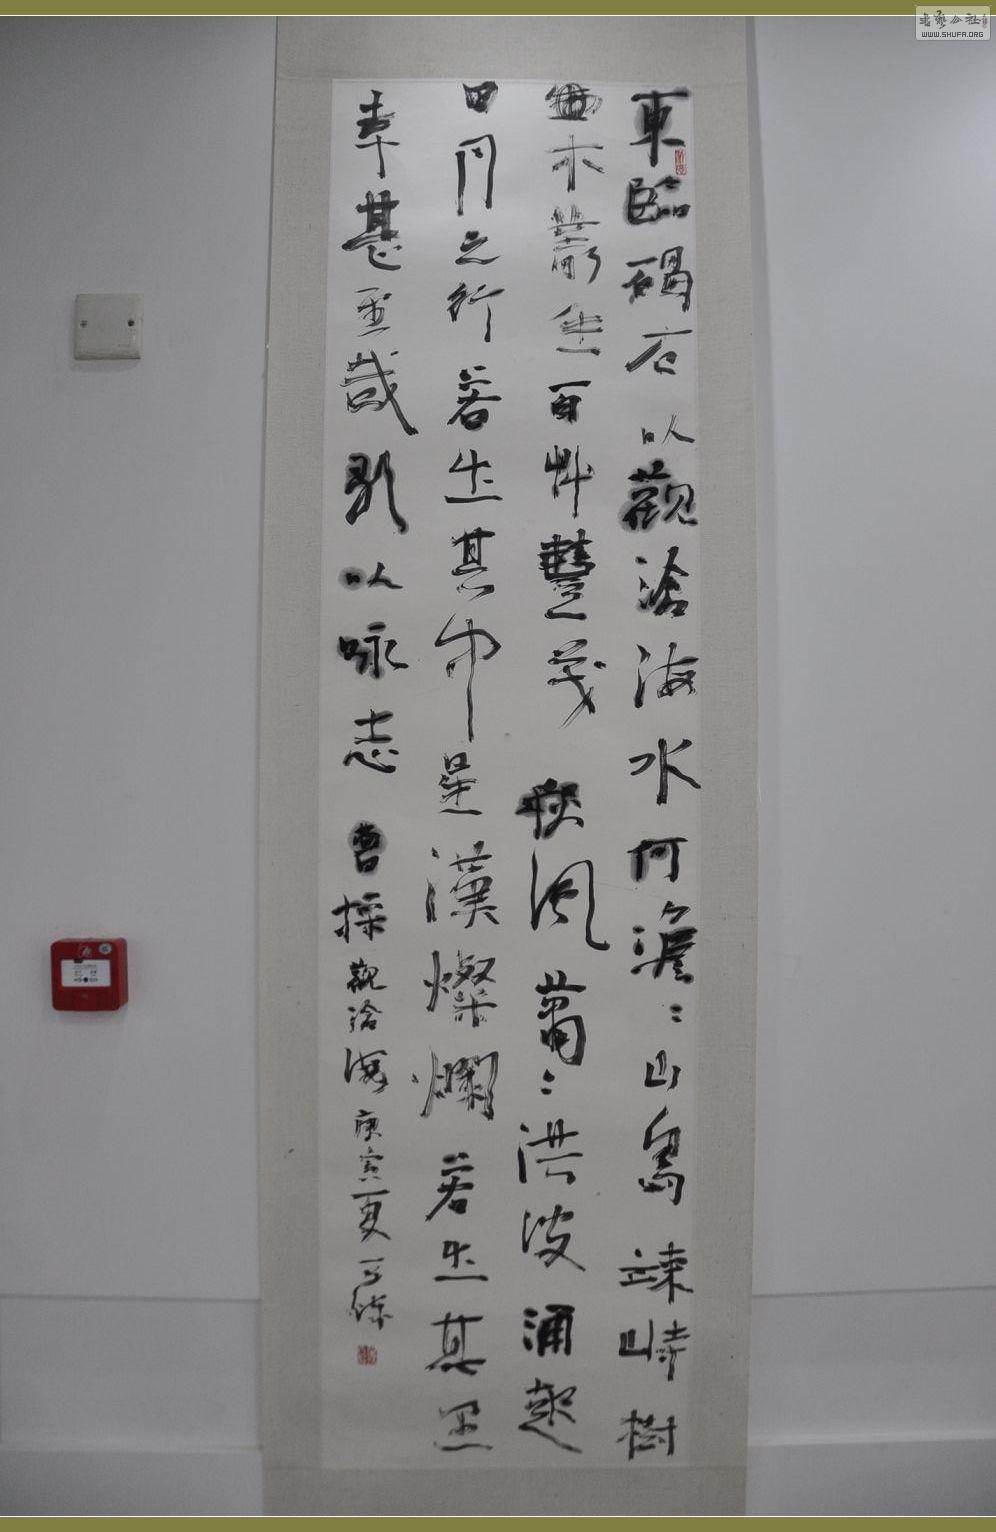 東臨碣石以觀滄海水何澹〻山島竦峙樹
木叢生百草豐茂秋風蕭〻洪波涌起
日月之行若出其中星漢燦爛若出其里
幸甚至哉歌以咏志 曹操觀滄海庚寅夏
書藝公社
WWW.SHUFA.ORG